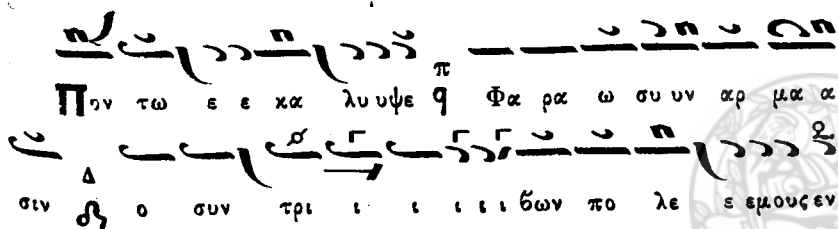 Πον τω ε ε κα λυ υψε π q Φα ρα ω συ υν αρ μα α
σιν Δ ο συν τρι ι ι ι ι ι βων πο λε ε εμους εν